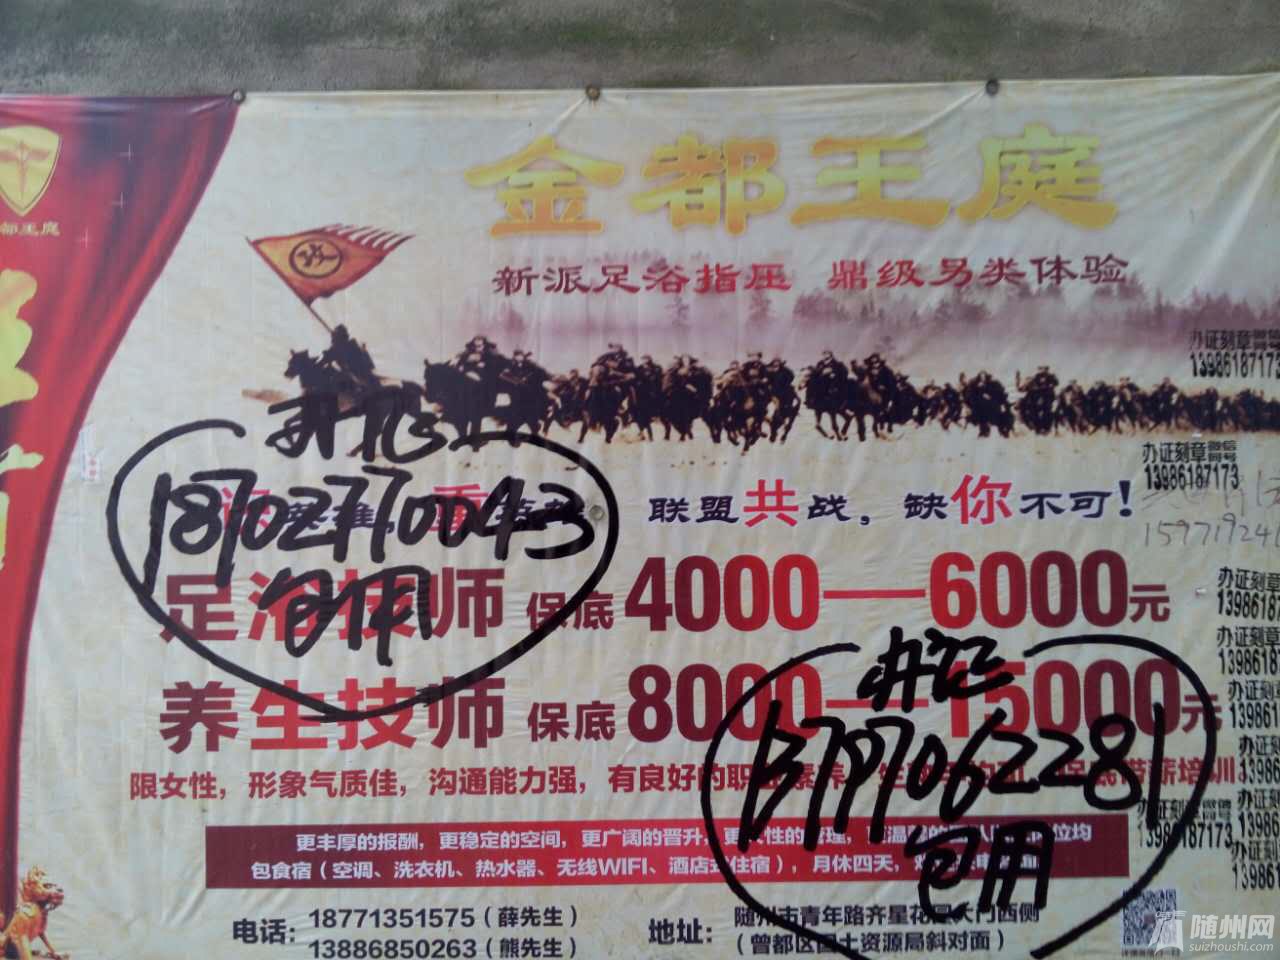 都王庭
金都王庭
新派足浴指压 鼎级另类体验
攻
办证刻章微信同号
13986187173
办证刻章微信同号
13986187173
18702770043
包用
联盟共战，缺你不可！
1597192
足浴技师 保底4000—6000元
办证刻章
办证刻章
办证
13797062281
包用
养生技师 保底8000—15000元
办证刻章
限女性，形象气质佳，沟通能力强，有良好的职业素养，
带薪培训
办证刻章
13986187173
更丰厚的报酬，更稳定的空间，更广阔的晋升，更人性的管理，
包食宿（空调、洗衣机、热水器、无线WIFI、酒店式住宿），月休四天，
电话：18771351575（薛先生）
13886850263（熊先生）
地址：随州市青年路齐星花园大门西侧
（曾都区国土资源局斜对面）
随州网
suizhoushi.com